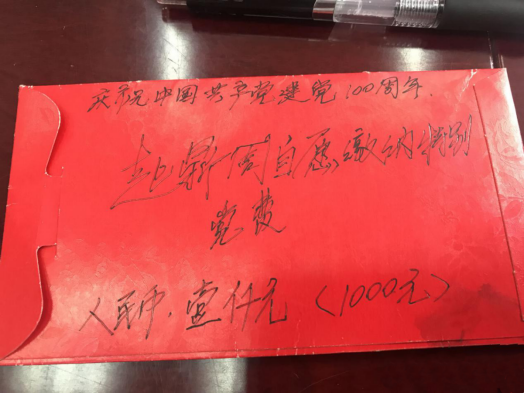 庆祝中国共产党建党100周年.
赵 同自愿缴纳特别
党费
人民币.壹仟元(1000元)